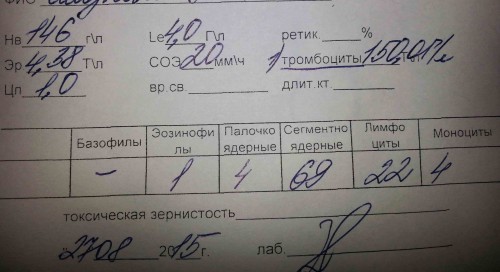 Нв 146 г\л Le 4,0 Г\л ретик. %
Эр 4,38 Т\л СОЭ 20 мм\ч тромбоциты 150,0 Г/л
Цп 1,0 вр.св. длит.кт.
Базофилы Эозинофи лы Палочко ядерные Сегментно ядерные Лимфо циты Моноциты
– 1 4 69 22 4
токсическая зернистость
27 08 2015г. лаб.